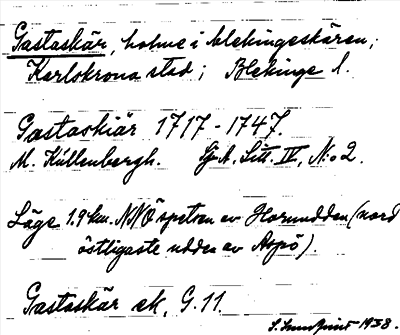 Gastaskär, holme i blekingeskären;
Karlskrona stad; Blekinge l.
Gastaskiär 1717-1747.
M. Küllenbergh. Sj.A. Litt. IV, N:o 2.
Läge 1.9 km. NNÖ spetsen av Hornudden (nord
östligaste udden av Aspö).
Gastaskär ek, G. 11.
1938.